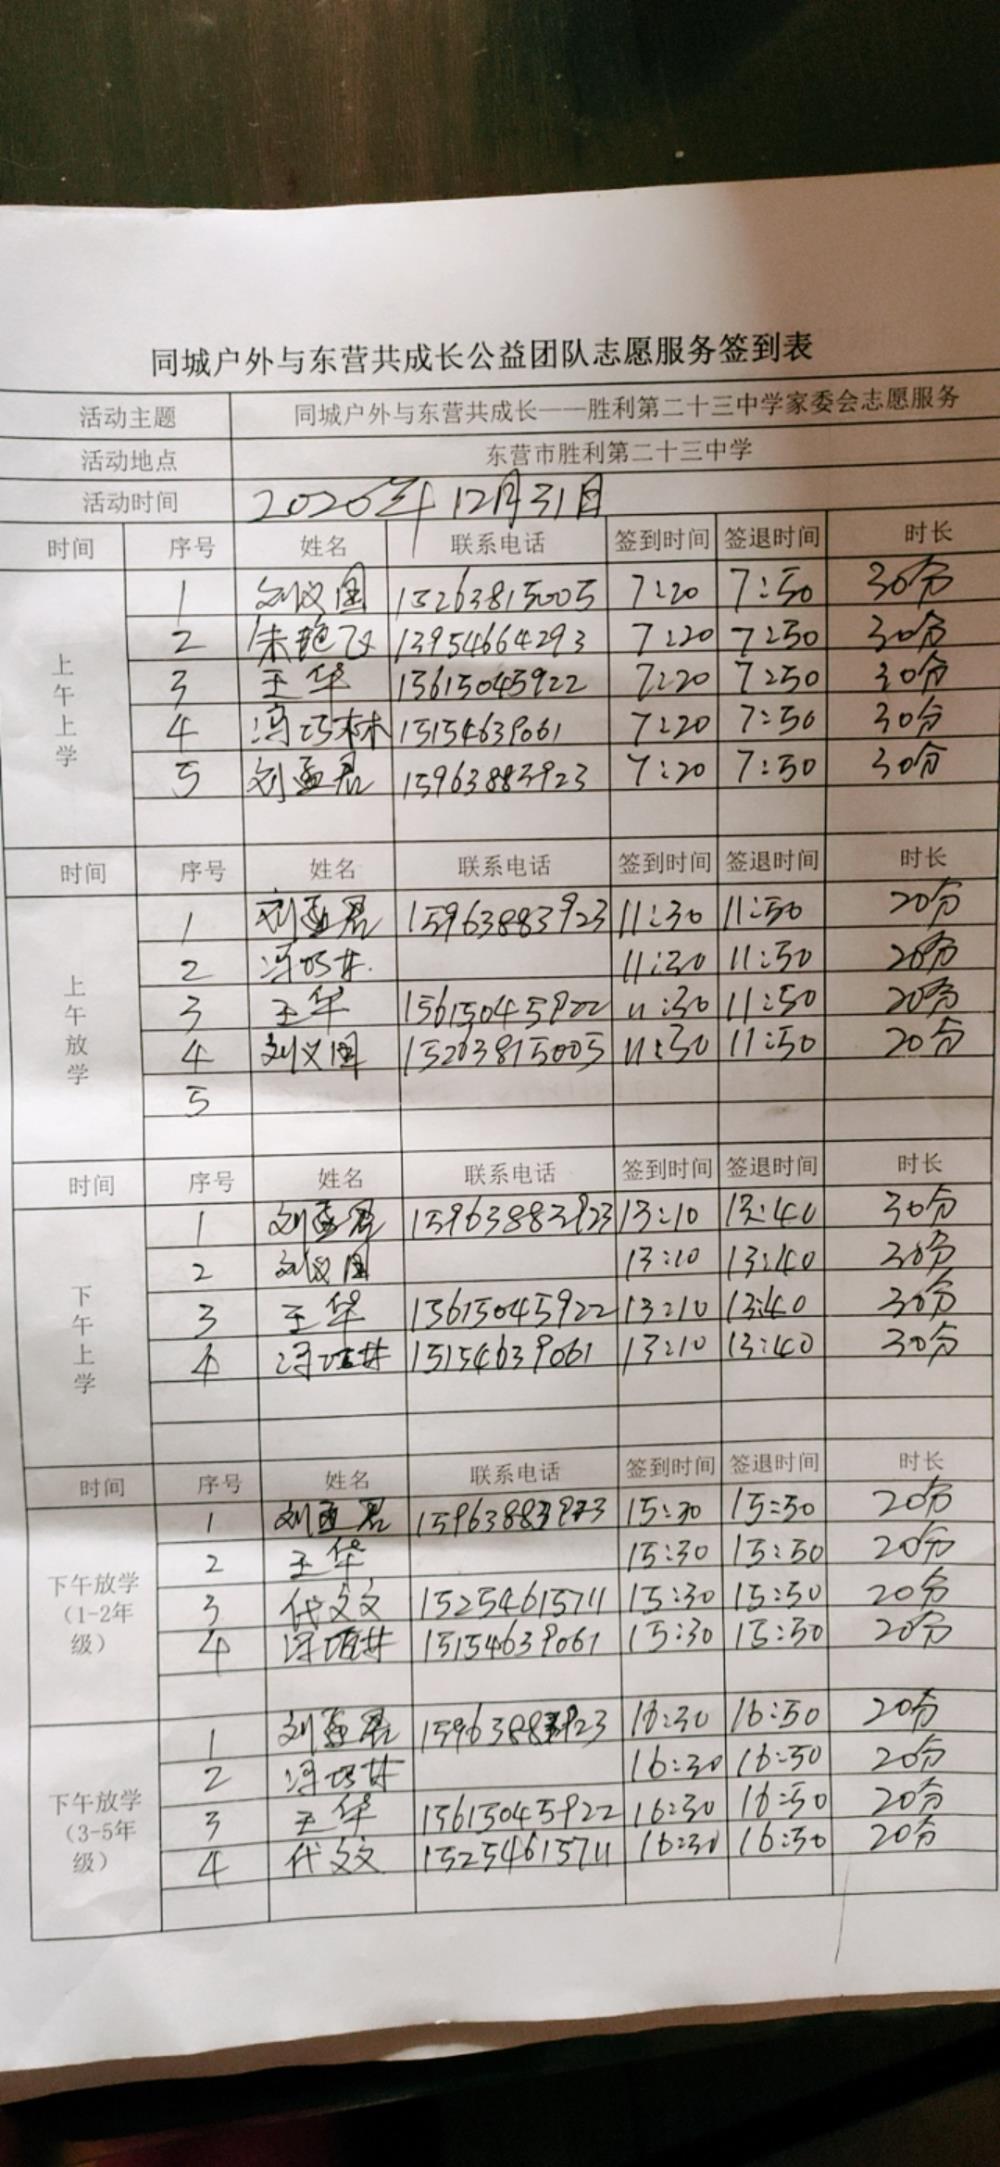 同城户外与东营共成长公益团队志愿服务签到表
活动主题 同城户外与东营共成长——胜利第二十三中学家委会志愿服务
活动地点 东营市胜利第二十三中学
活动时间 2020年12月31日
时间 序号 姓名 联系电话 签到时间 签退时间 时长
上午上学
1 刘义国 15263815005 7:20 7:50 30分
2 朱艳飞 13954664293 7:20 7:50 30分
3 王华 15615045922 7:20 7:50 30分
4 冯巧林 15154639061 7:20 7:50 30分
5 刘孟君 15963883923 7:20 7:50 30分
时间 序号 姓名 联系电话 签到时间 签退时间 时长
上午放学
1 刘孟君 15963883923 11:30 11:50 20分
2 冯 11:30 11:50 20分
3 王华 15615045922 11:30 11:50 20分
4 刘义国 15263815005 11:30 11:50 20分
5
时间 序号 姓名 联系电话 签到时间 签退时间 时长
下午上学
1 刘孟君 15963883923 13:10 13:40 30分
2 刘义国 13:10 13:40 30分
3 王华 15615045922 13:10 13:40 30分
4 冯 15154639061 13:10 13:40 30分
时间 序号 姓名 联系电话 签到时间 签退时间 时长
下午放学
(1-2年
级)
1 刘孟君 15963883923 15:30 15:50 20分
2 王华 15:30 15:50 20分
3 代文文 15254615711 15:30 15:50 20分
4 冯 15154639061 15:30 15:50 20分
下午放学
(3-5年
级)
1 刘孟君 15963883923 16:30 16:50 20分
2 冯 16:30 16:50 20分
3 王华 15615045922 16:30 16:50 20分
4 代文文 15254615711 16:30 16:50 20分